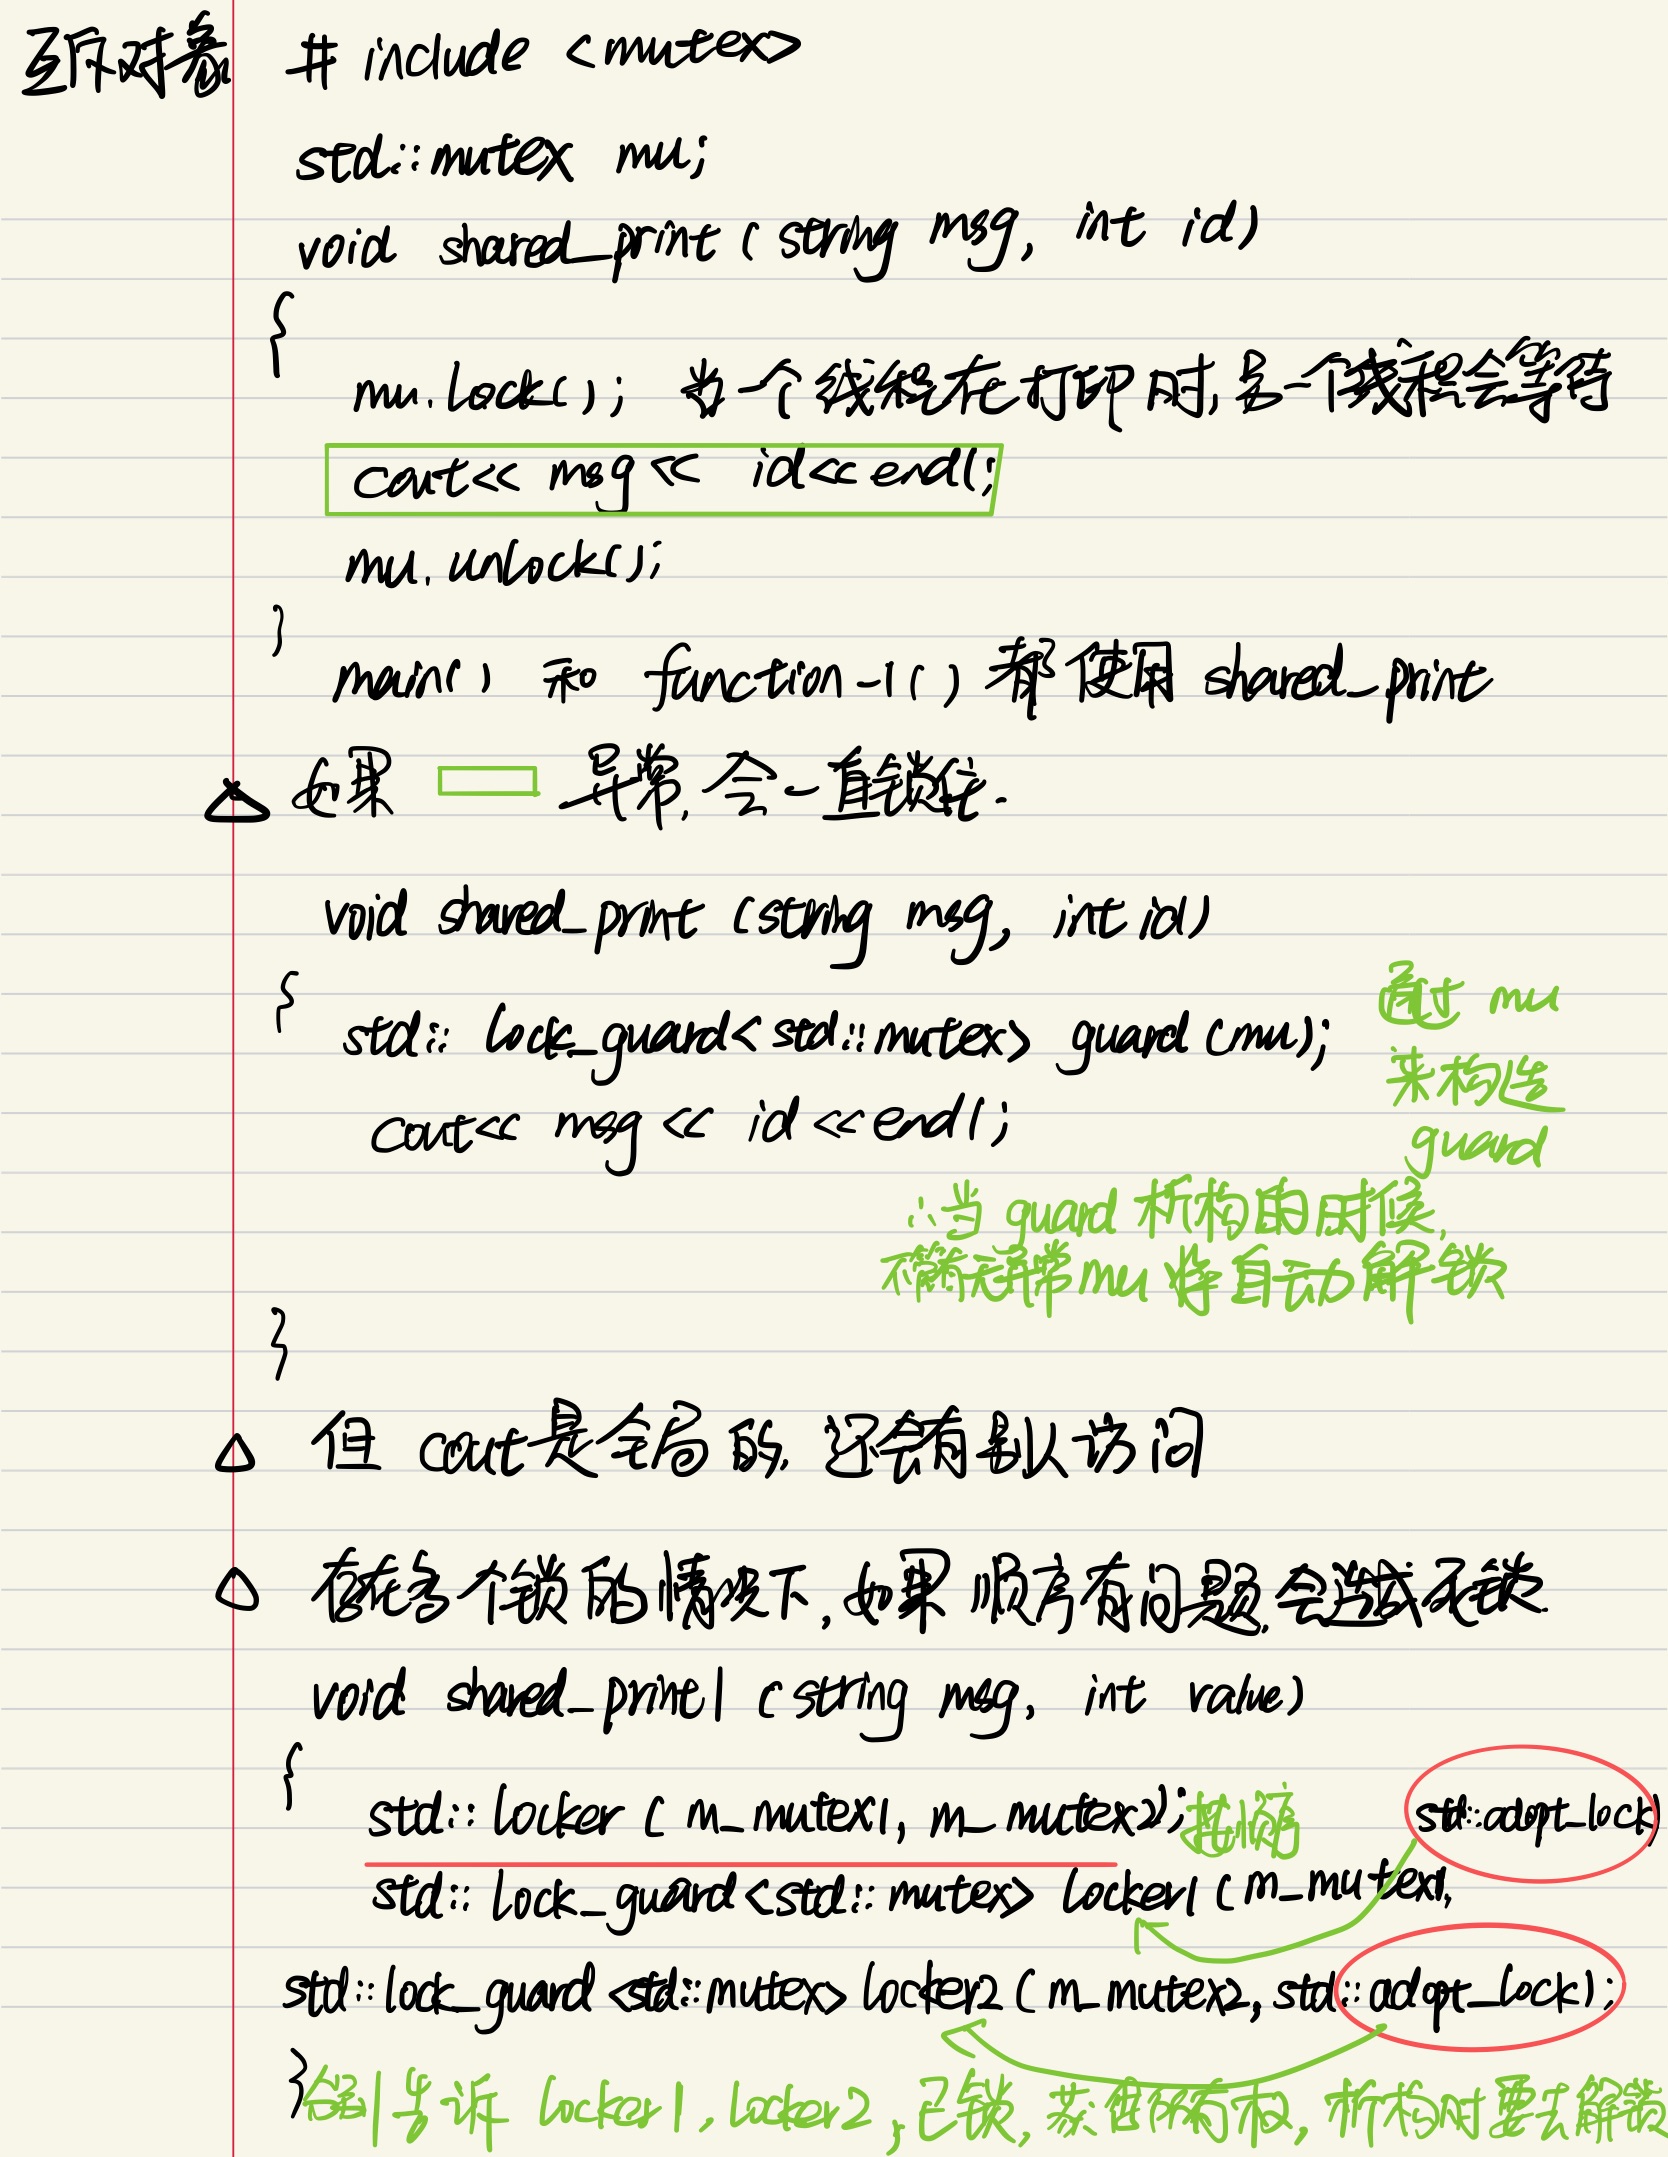 互斥对象 # include <mutex>
std::mutex mu;
void shared_print ( string msg, int id )
{
mu.lock(); 当一个线程在打印时, 另一个线程会等待
cout<< msg << id<< endl;
mu.unlock();
}
main() 和 function-1() 都使用 shared_print
如果 异常, 会一直锁住.
void shared_print (string msg, int id)
{
std:: lock_guard<std::mutex> guard (mu);
通过 mu
来构造
guard
cout<< msg << id <<endl;
∴当 guard 析构的时候,
不管有无异常 mu 将自动解锁
}
但 cout是全局的, 还会有别人访问
存在多个锁的情况下, 如果顺序有问题, 会造成死锁.
void shared_print1 (string msg, int value)
{
std:: locker ( m_mutex1, m_mutex2); 顺序
std:: lock_guard<std:: mutex> locker1 (m_mutex1, std::adopt_lock)
std::lock_guard <std::mutex> locker2 ( m_mutex2, std::adopt_lock);
}
告诉 locker1, locker2, 已锁, 获得所有权, 析构时要去解锁